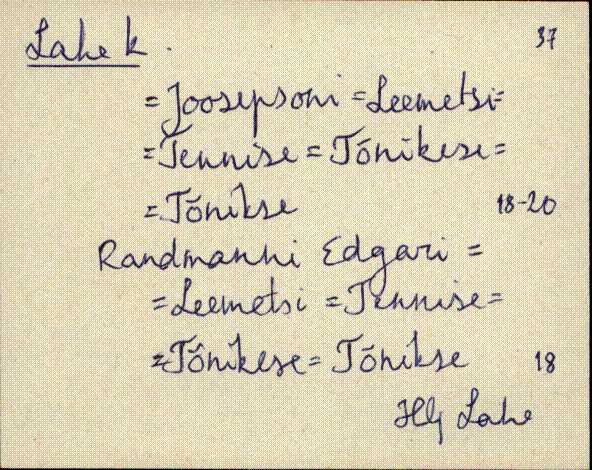 Lahe k. 37
= Joosepsoni = Leemetsi =
= Tennise = Tõnikese =
= Tõnikse 18-20
Randmanni Edgari =
= Leemetsi = Tennise =
= Tõnikese = Tõnikse 18
Hlj Lahe